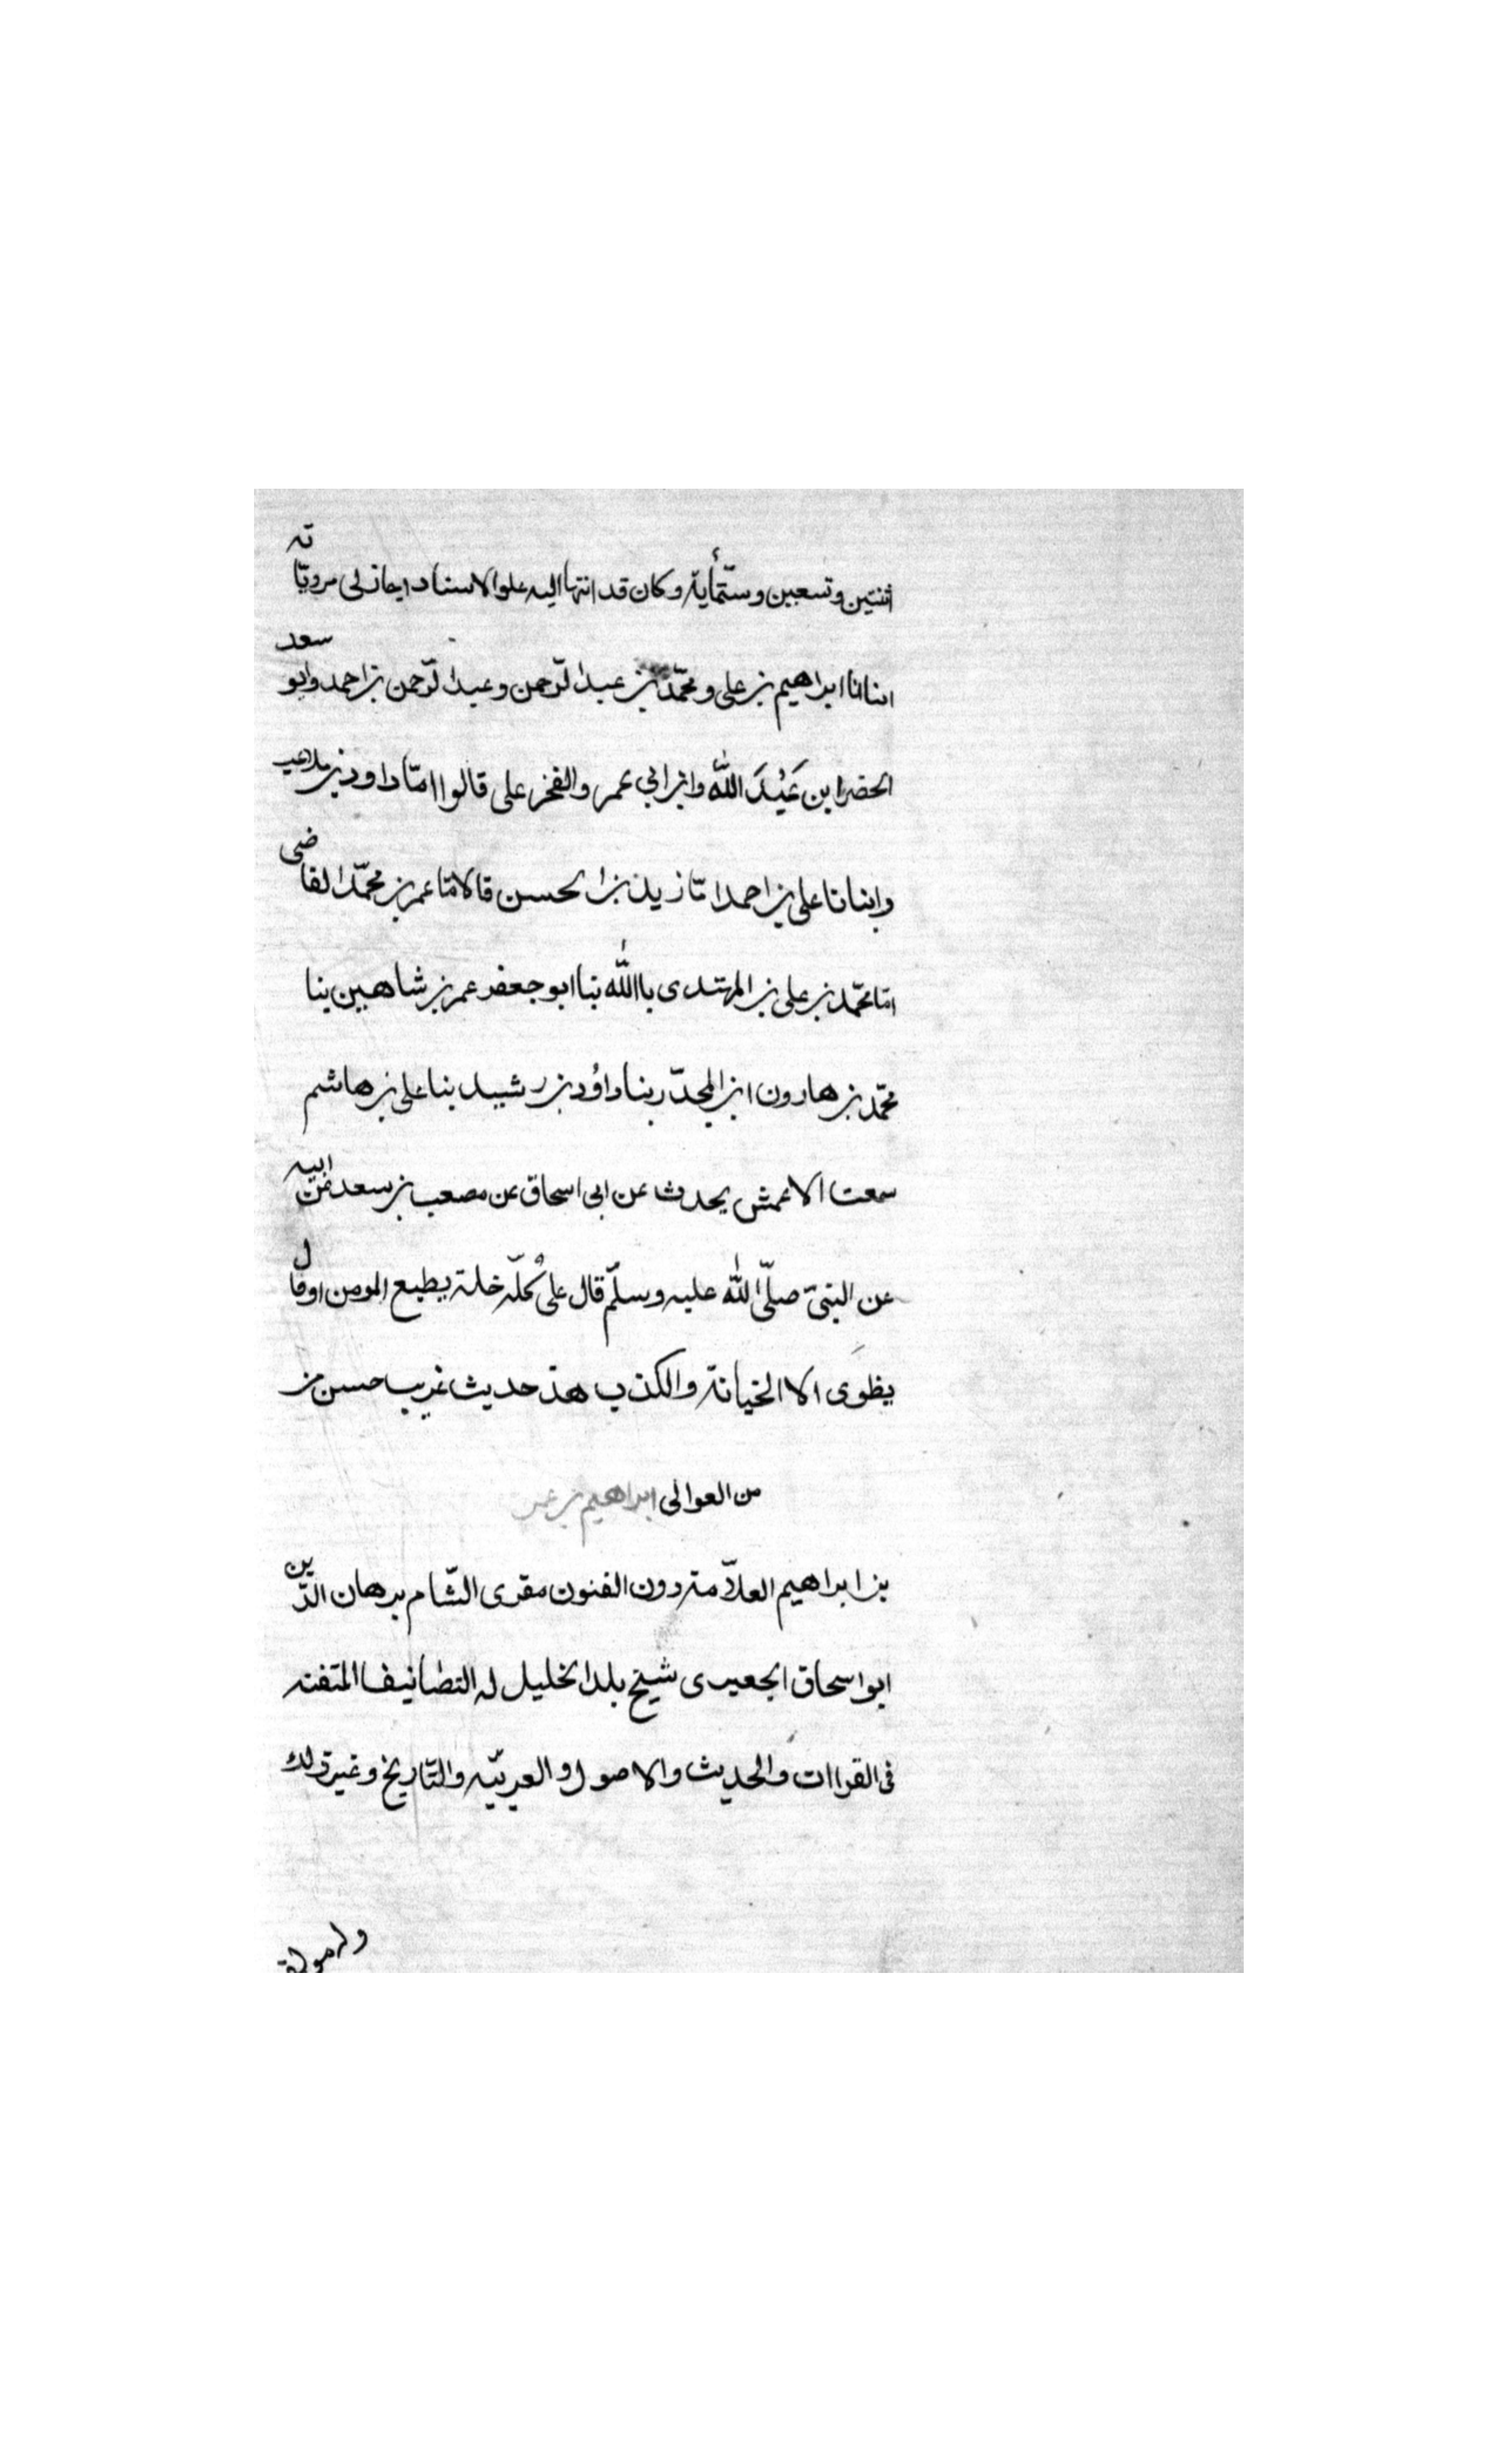 اثنتين وتسعين وستّمأية وكان قد انتها اليه علو الاسناد اجاز لى مروياته
انبانا ابراهيم بن على ومحمّد بن عبد الرّحمن وعبد الرّحمن بن احمد وابو سعد
الخضر ابن عَبْدَ اللّٰه وابن ابي عمر والفخر على قالوا انبّا داود بن ملاعب
وانبانا على بن احمد انبّا زيد بن الحسن قالا انبّا عمر بن محمّد القاضى
انبّا محمّد بن على بن المهتدى باللّٰه بنا ابو جعفر عمر بن شاهين بنا
محمّد بن هارون ابن المجدّر بنا داوُد بن رشيد بنا على بن هاشم
سمعت الاعمش يحدث عن ابى اسحاق عن مصعب بن سعد عن ابيه
عن النبىّ صلّى اللّٰه عليه وسلّم قال على كُلّ خلة يطبع المومن اوقال
يطوى الا الخيانة والكذب هذ حديث غريب حسن من
من العوالى ابراهيم بن عمر
بن ابراهيم العلاّمة ذون الفنون مقرى الشّام برهان الدّين
ابو اسحاق الجعبرى شيخ بلد الخليل له التصانيف المتقنه
فى القراات والحديث والاصول والعربيّه والتّاريخ وغير ذلك
وله مولفـ